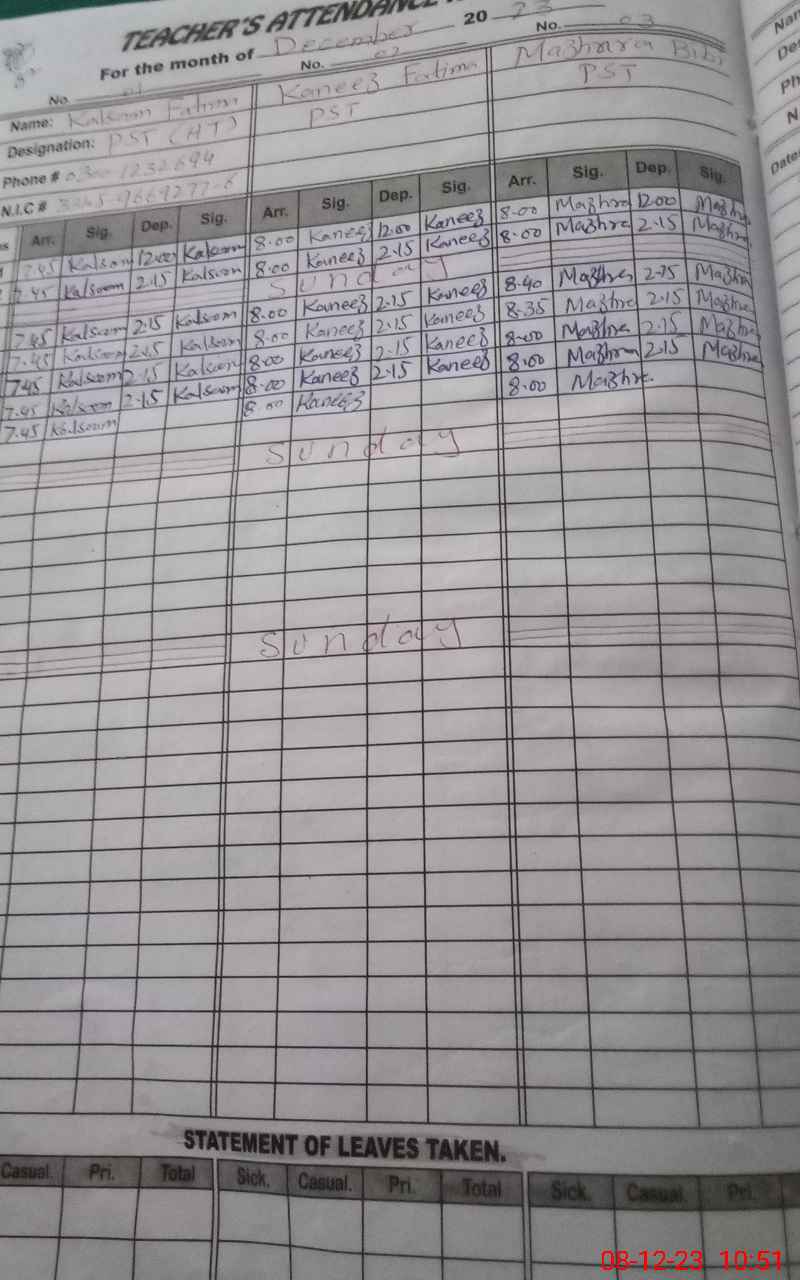 TEACHER'S ATTENDANCE
For the month of December 2023
No. 01 No. 02 No. 03
Name: Kalsoom Fatima Kaneez Fatima Mazhara Bibi
Designation: PST (HT) PST PST
Phone #
N.I.C #
Arr. Sig. Dep. Sig. Arr. Sig. Dep. Sig. Arr. Sig. Dep. Sig.
7.45 Kalsoom 12.00 Kalsoom 8.00 Kaneez 12.00 Kaneez 8.00 Mazhra 12.00 Mazhra
7.45 Kalsoom 2.15 Kalsoom 8.00 Kaneez 2.15 Kaneez 8.00 Mazhra 2.15 Mazhra
Sunday
7.45 Kalsoom 2.15 Kalsoom 8.00 Kaneez 2.15 Kaneez 8.40 Mazhra 2.15 Mazhra
7.45 Kalsoom 2.15 Kalsoom 8.00 Kaneez 2.15 Kaneez 8.35 Mazhra 2.15 Mazhra
7.45 Kalsoom 2.15 Kalsoom 8.00 Kaneez 2.15 Kaneez 8.00 Mazhra 2.15 Mazhra
7.45 Kalsoom 2.15 Kalsoom 8.00 Kaneez 2.15 Kaneez 8.00 Mazhra 2.15 Mazhra
7.45 Kalsoom 8.00 Kaneez 8.00 Mazhra
Sunday
Sunday
STATEMENT OF LEAVES TAKEN.
Casual. Pri. Total Sick. Casual. Pri. Total Sick. Casual. Pri.
08-12-23 10:51